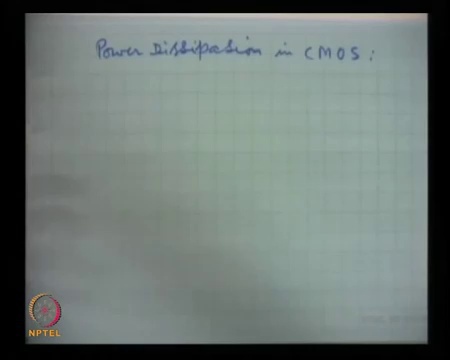 Power Dissipation in CMOS :
NPTEL